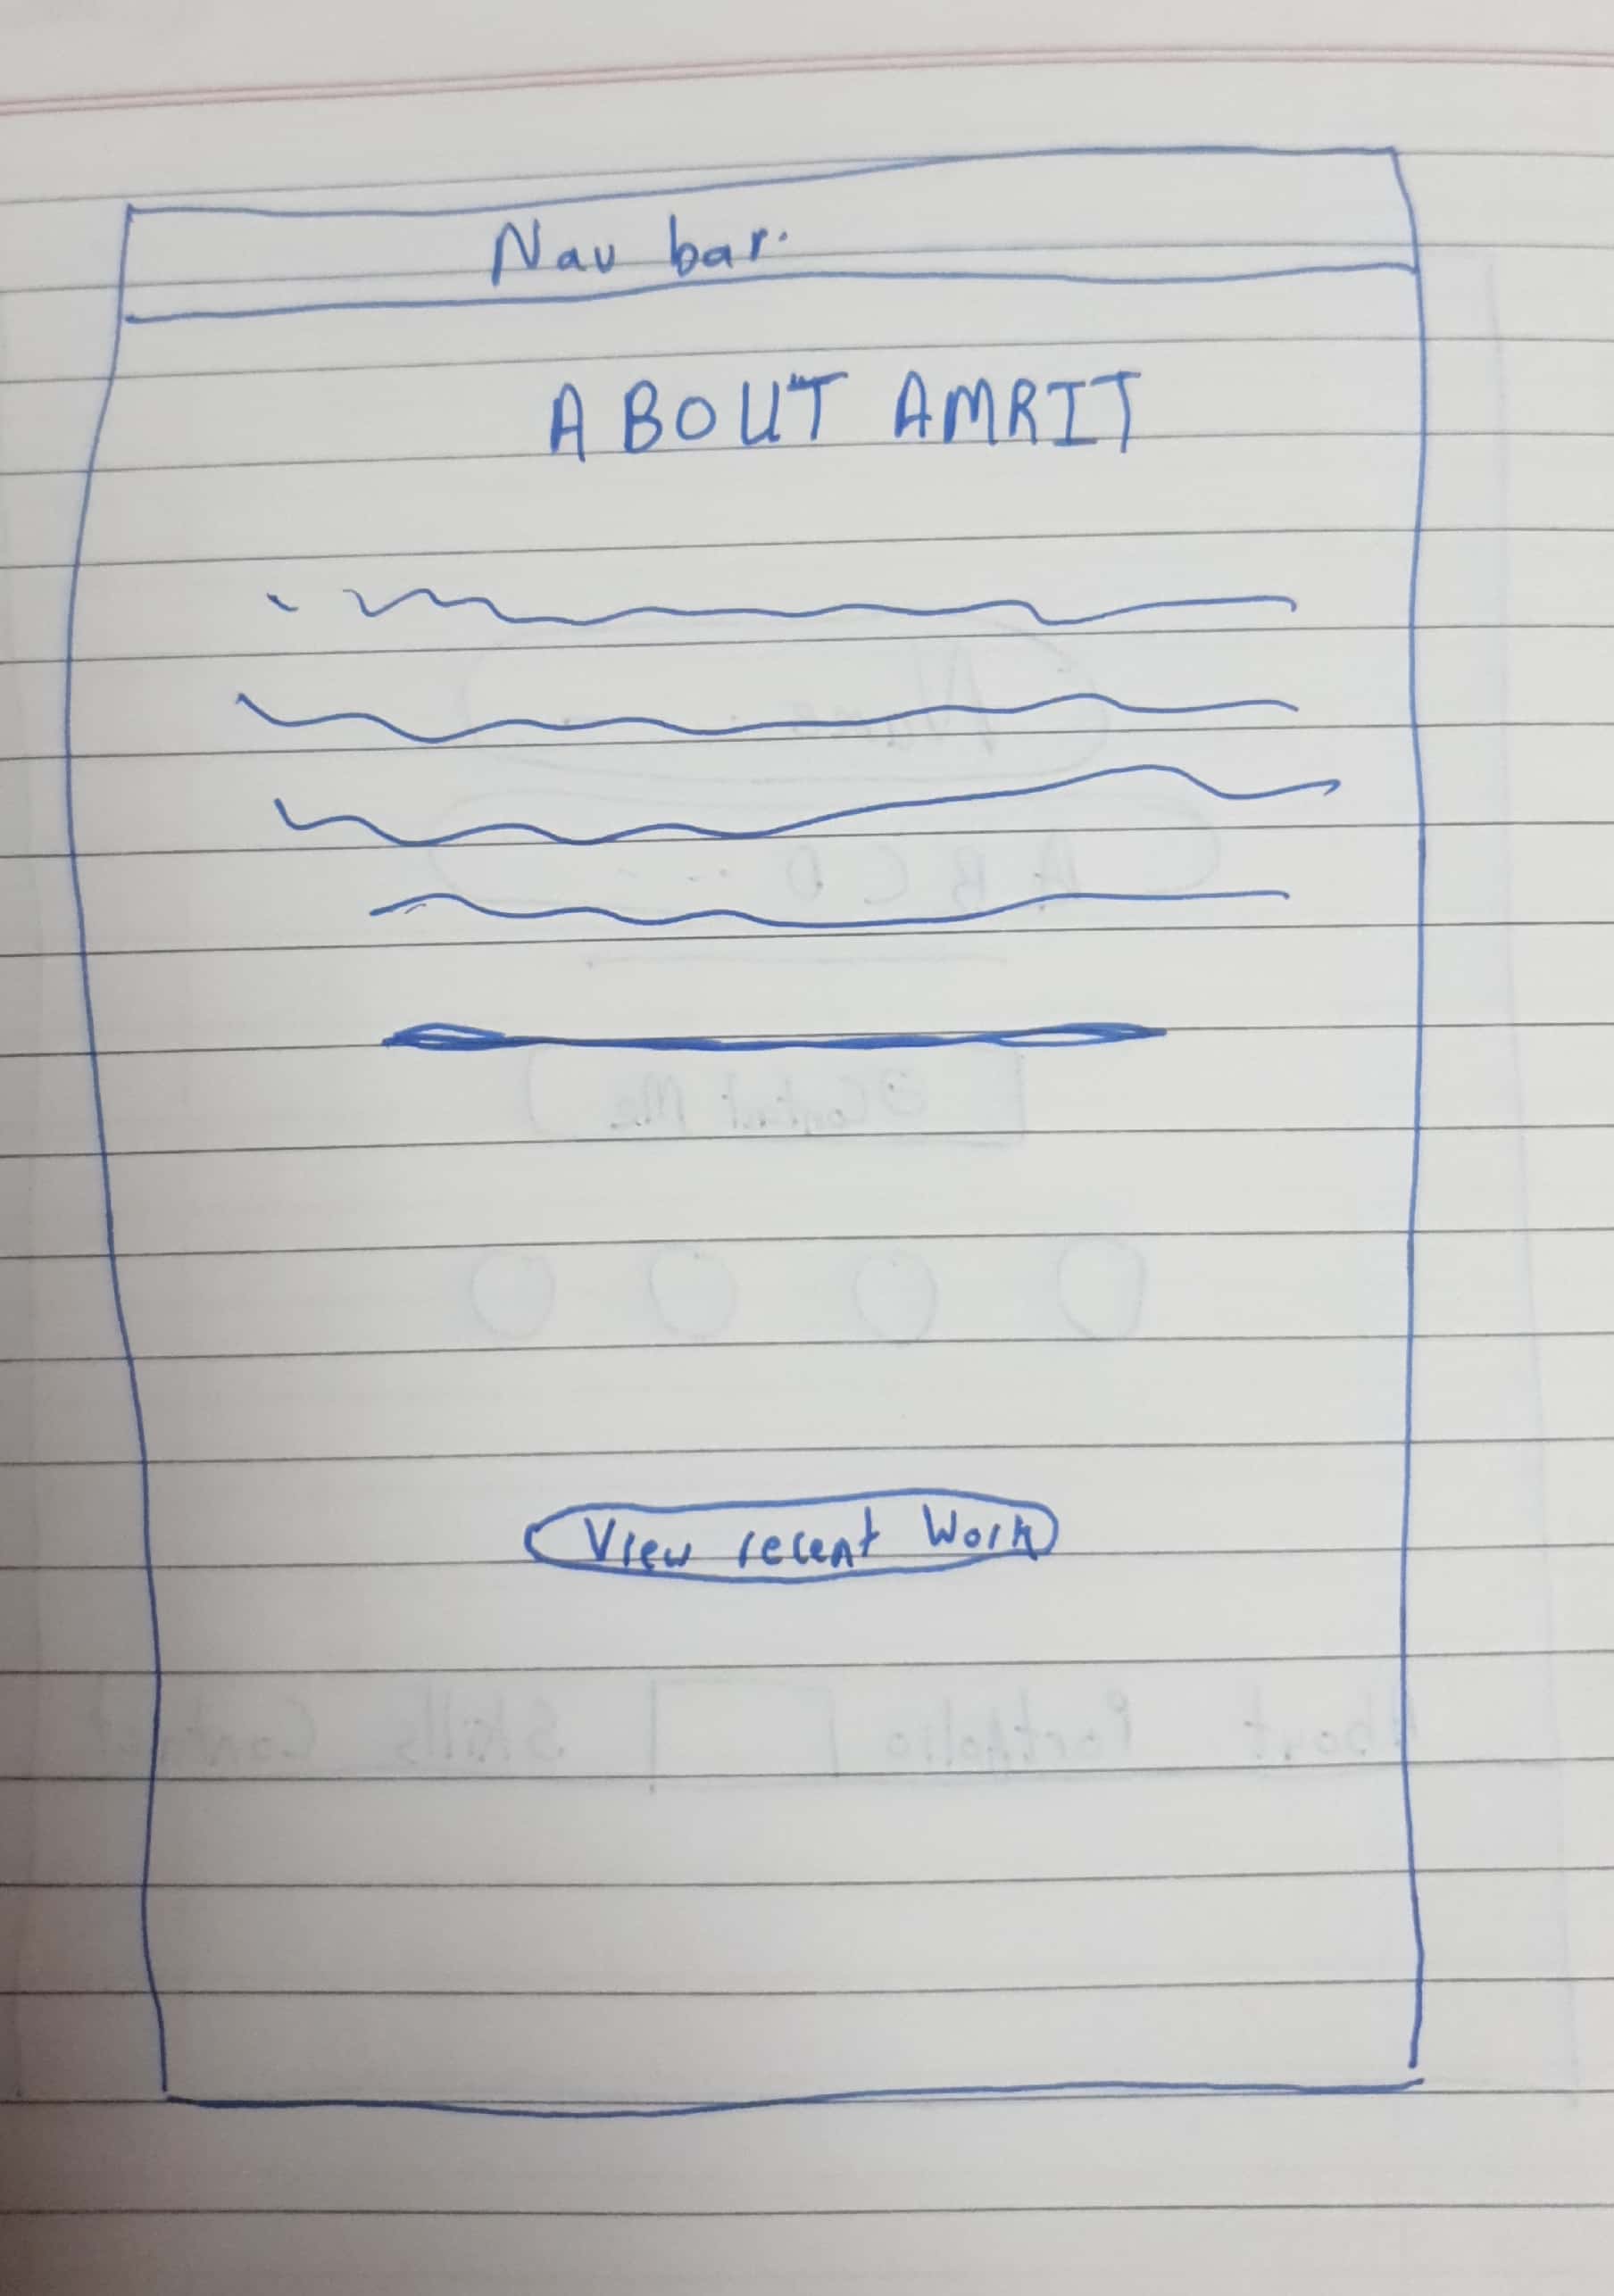 Nav bar.
ABOUT AMRIT
View recent Work